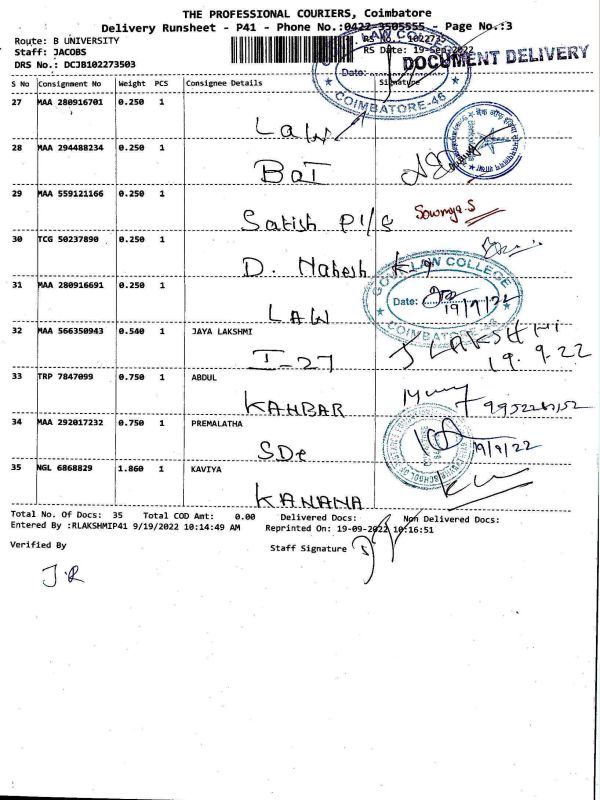 THE PROFESSIONAL COURIERS, Coimbatore
Delivery Runsheet - P41 - Phone No.:0422-3505555 - Page No.:3
Route: B UNIVERSITY
RS No.: 1022735
Staff: JACOBS
RS Date: 19-Sep-2022
DRS No.: DCJB102273503
DOCUMENT DELIVERY
LAW CO
Date:
COIMBATORE-46
S No Consignment No Weight PCS Consignee Details Signature
27 MAA 280916701 0.250 1
LAW
28 MAA 294488234 0.250 1
BOI
29 MAA 559121166 0.250 1
Satish P1/s Sowmya.S
30 TCG 50237890 0.250 1
D. Mahesh
31 MAA 280916691 0.250 1
LAW
GOVT LAW COLLEGE
Date: 19/9/22
COIMBATORE-46
32 MAA 566350943 0.540 1 JAYA LAKSHMI
I-27 J LAKSHMI
19.9.22
33 TRP 7847099 0.750 1 ABDUL
KAHBAR
34 MAA 292017232 0.750 1 PREMALATHA
SDE 19/9/22
35 NGL 6868829 1.860 1 KAVIYA
KANANA
Total No. Of Docs: 35 Total COD Amt: 0.00 Delivered Docs: Non Delivered Docs:
Entered By :RLAKSHMIP41 9/19/2022 10:14:49 AM Reprinted On: 19-09-2022 10:16:51
Verified By
Staff Signature
J.R